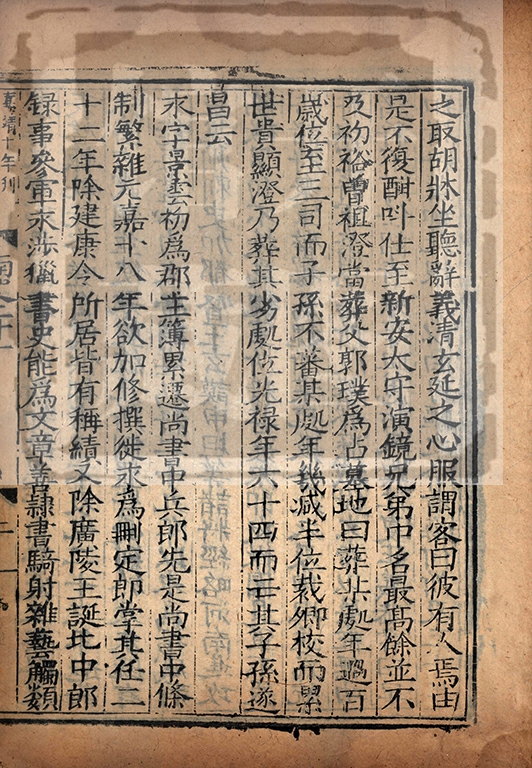 之取胡牀坐聽辭義清玄延之心服謂客曰彼有人焉由
是不復酣叫仕至新安太守演鏡兄弟中名最高餘並不
及初裕曾祖澄當葬父郭璞爲占墓地曰葬某處年過百
歲位至三司而子孫不蕃某處年幾減半位裁卿校而累
世貴顯澄乃葬其劣處位光祿年六十四而亡其子孫遂
昌云
永字景雲初爲郡主簿累遷尚書中兵郎先是尚書中條
制繁雜元嘉十八年欲加修撰徙永爲刪定郎掌其任二
十二年除建康令所居皆有稱績又除廣陵王誕北中郎
録事參軍永涉獵書史能爲文章善隸書騎射雜藝觸類
嘉靖十年刊